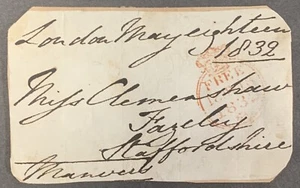 London May eighteen
1832
Miss Clemenshaw
Fazeley
Staffordshire
Manvers
FREE